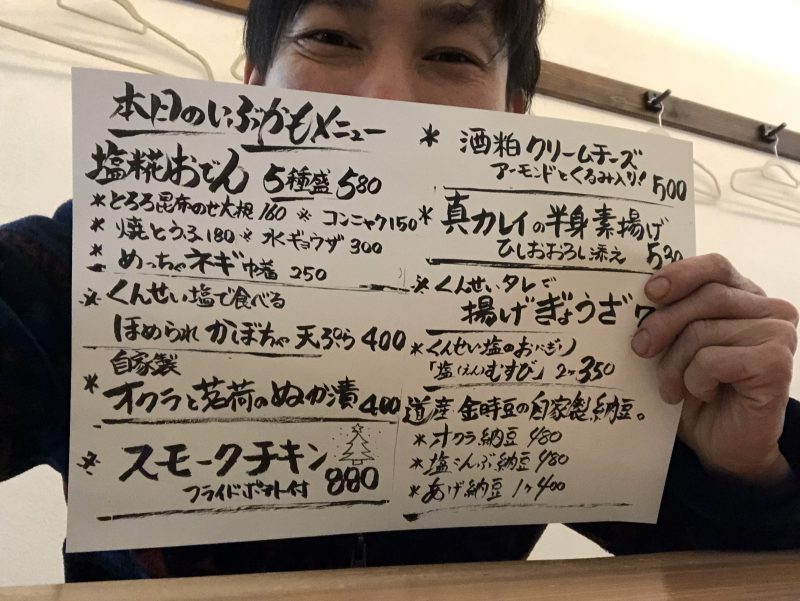 本日のいぶかもメニュー
塩糀おでん 5種盛 580
*とろろ昆布のせ大根 160 ※ コンニャク 150
*焼とうふ 180 ※ 水ギョウザ 300
* めっちゃネギ巾着 250
* くんせい塩で食べる
ほめられかぼちゃ天ぷら 400
自家製
* オクラと茗荷のぬか漬 400
* スモークチキン
フライドポテト付 880
* 酒粕クリームチーズ
アーモンドとくるみ入り! 500
* 真カレイの半身素揚げ
ひしおおろし添え
* くんせいタレで
揚げぎょうざ
* くんせい塩のおにぎり
「塩(えん)むすび」 2ヶ 350
道産 金時豆の自家製納豆。
* オクラ納豆 480
* 塩こんぶ納豆 480
* あげ納豆 1ヶ 400